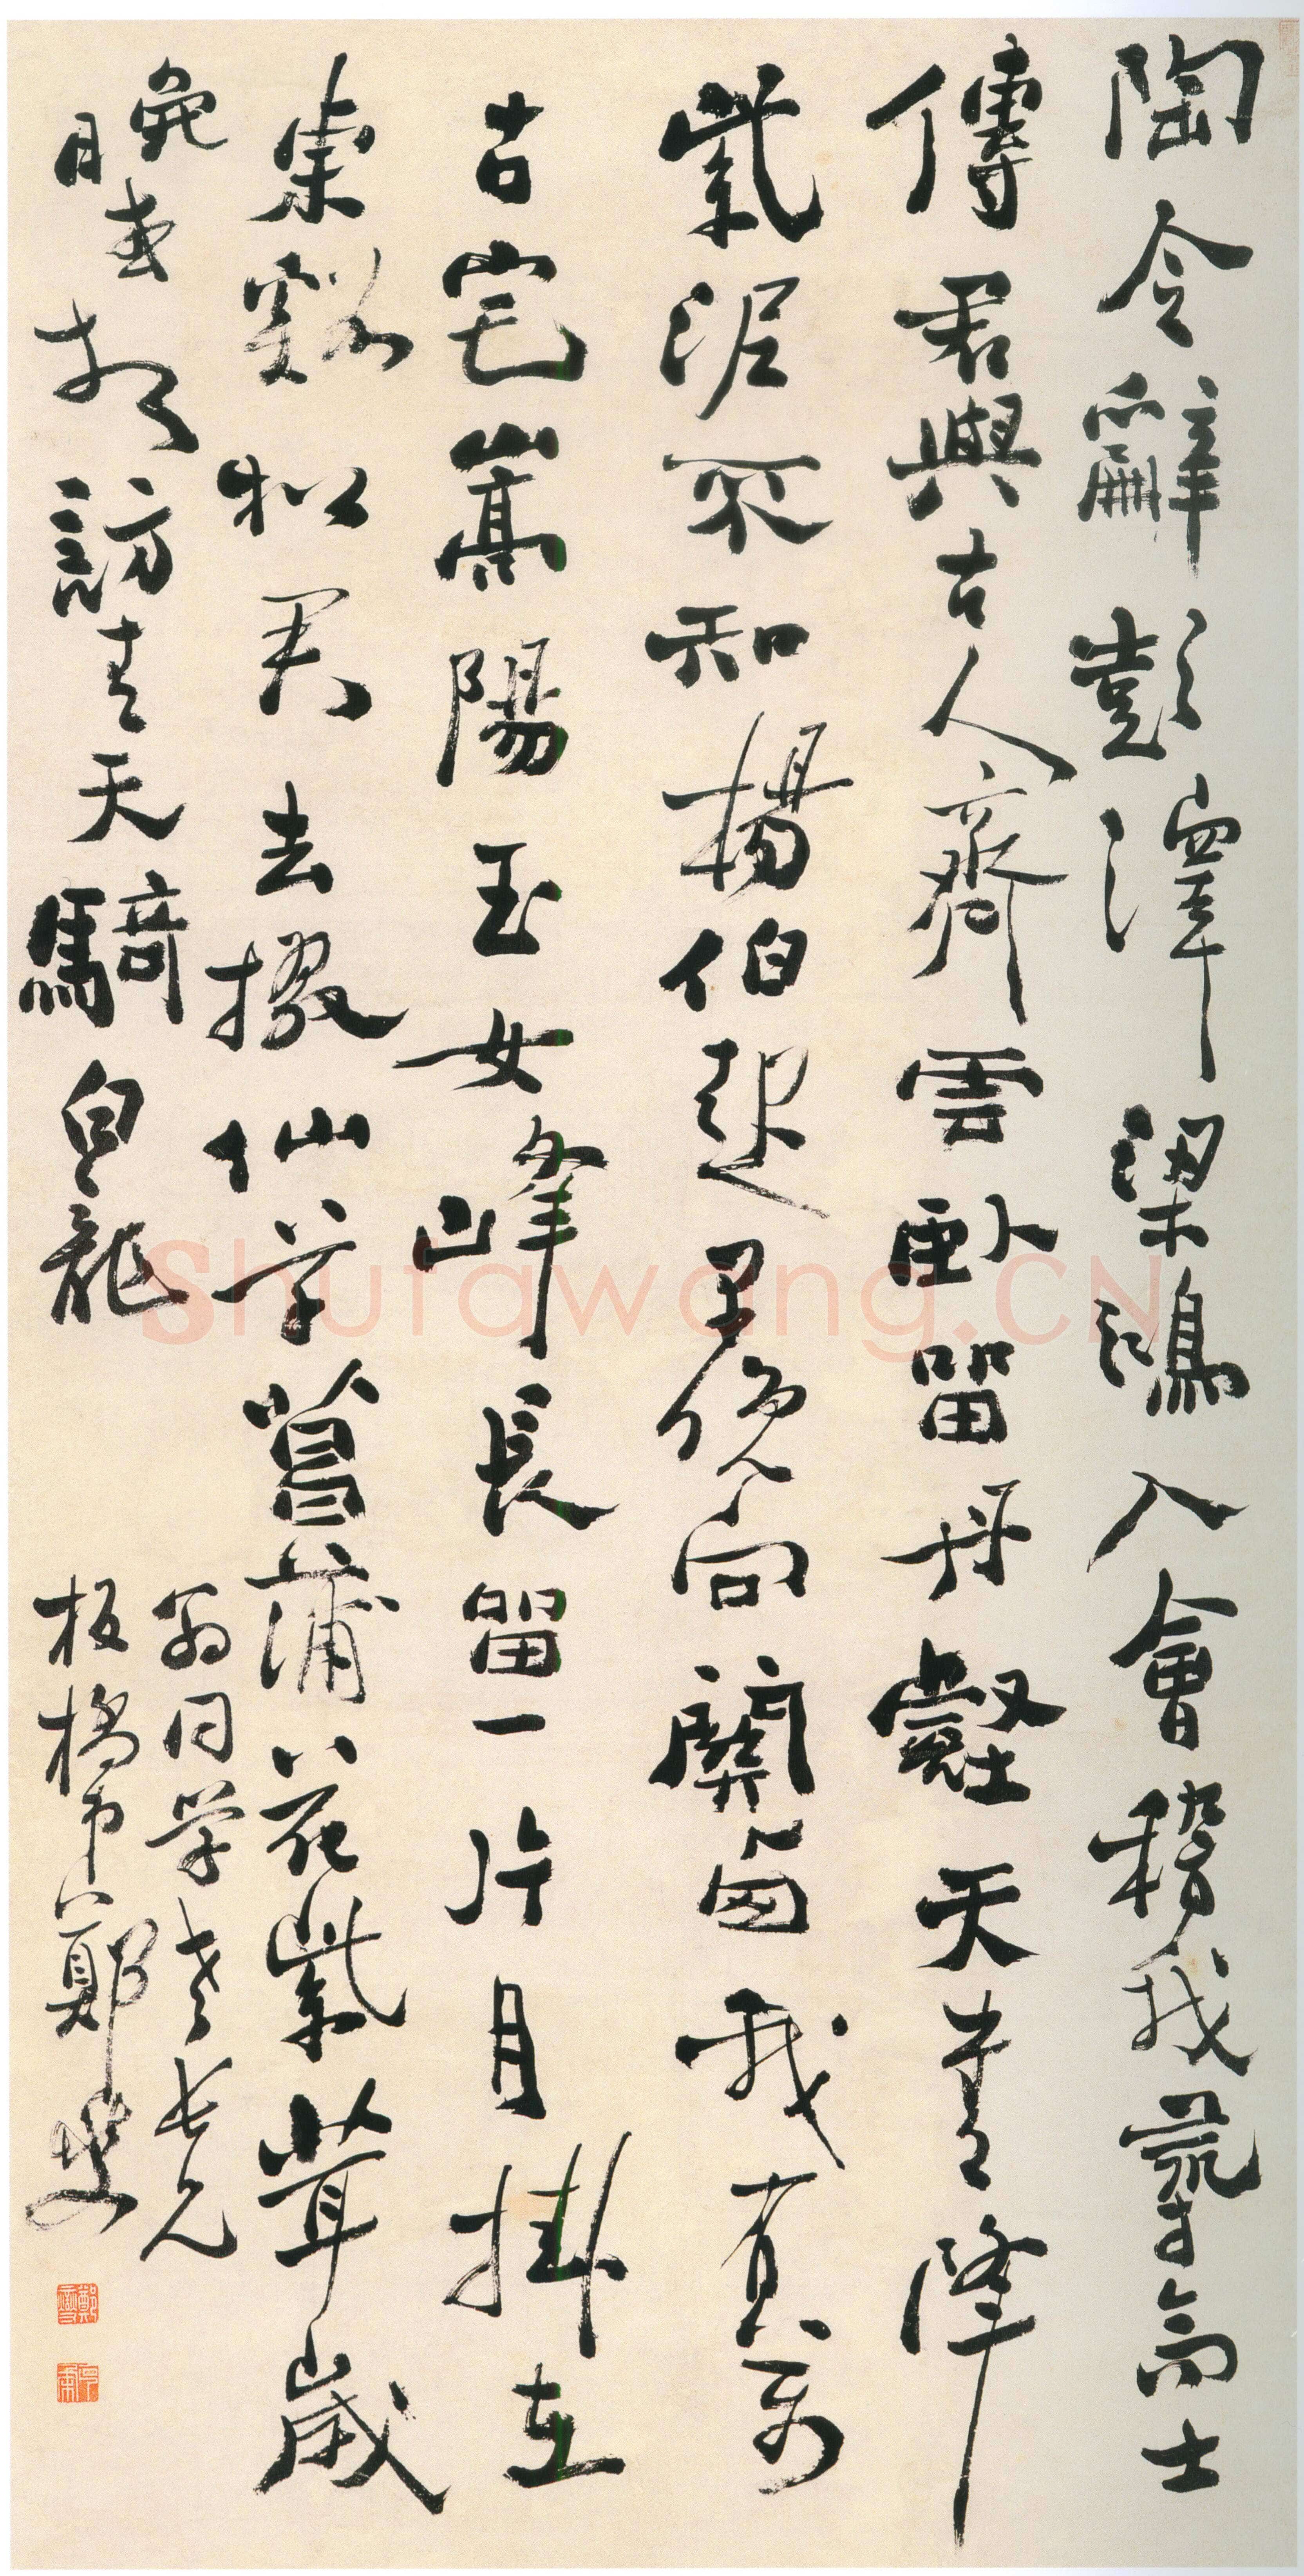 陶令辭彭澤梁鴻入會稽我尋高士
傳君與古人齊雲卧留丹壑天書降
紫泥不知楊伯起早晚向關西我有万
古宅嵩陽玉女峰長留一片月掛在
東谿松君去掇仙草菖蒲花紫茸歲
晚或相訪青天騎白龍
為同学老長兄
板橋弟鄭燮
鄭燮
Shufawang.CN